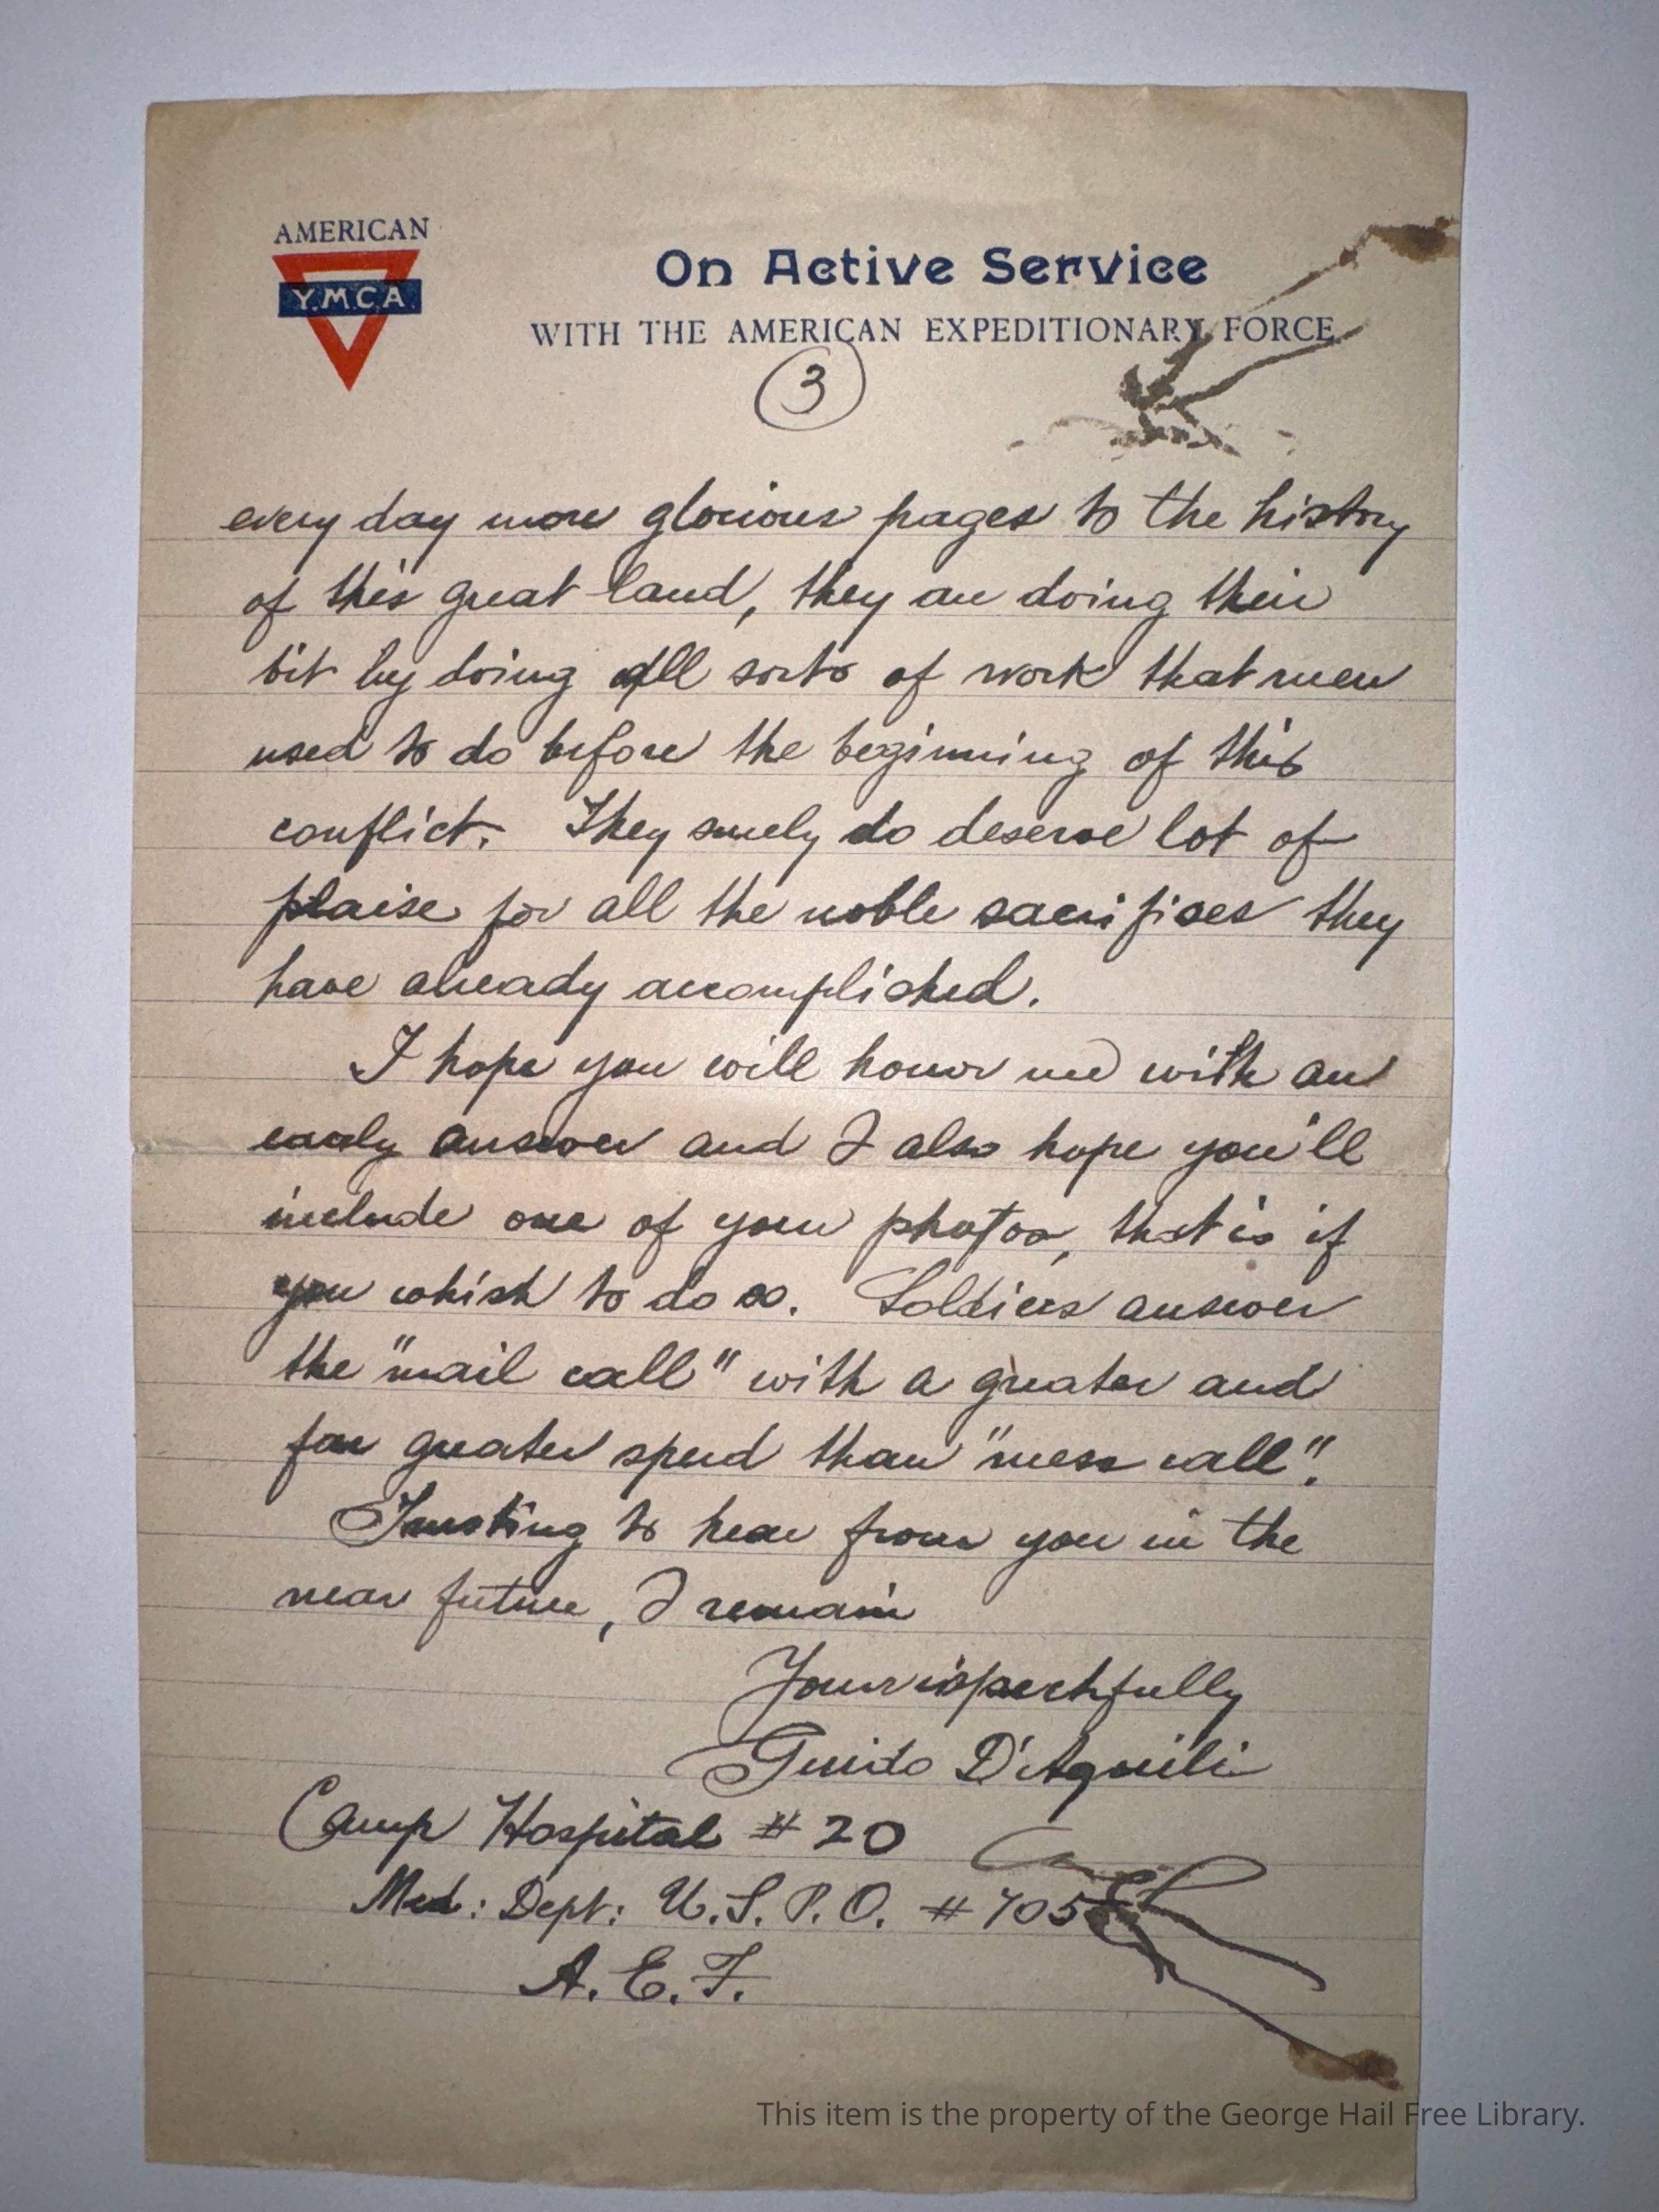 AMERICAN
Y.M.C.A.
On Active Service
WITH THE AMERICAN EXPEDITIONARY FORCE
3
every day more glorious pages to the history
of this great land, they are doing their
bit by doing all sorts of work that men
used to do before the beginning of this
conflict. They surely do deserve lot of
plaise for all the noble sacrifises they
have already accomplished.
I hope you will honor me with an
early answer and I also hope you'll
include one of your photos, that is if
you whish to do so. Soldiers answer
the "mail call" with a greater and
far greater speed than "mess call".
Trusting to hear from you in the
near future, I remain
Your
Guido D'Aquili
Camp Hospital # 20
Med: Dept: U.S. P.O. # 705
A.E.F.
This item is the property of the George Hail Free Library.